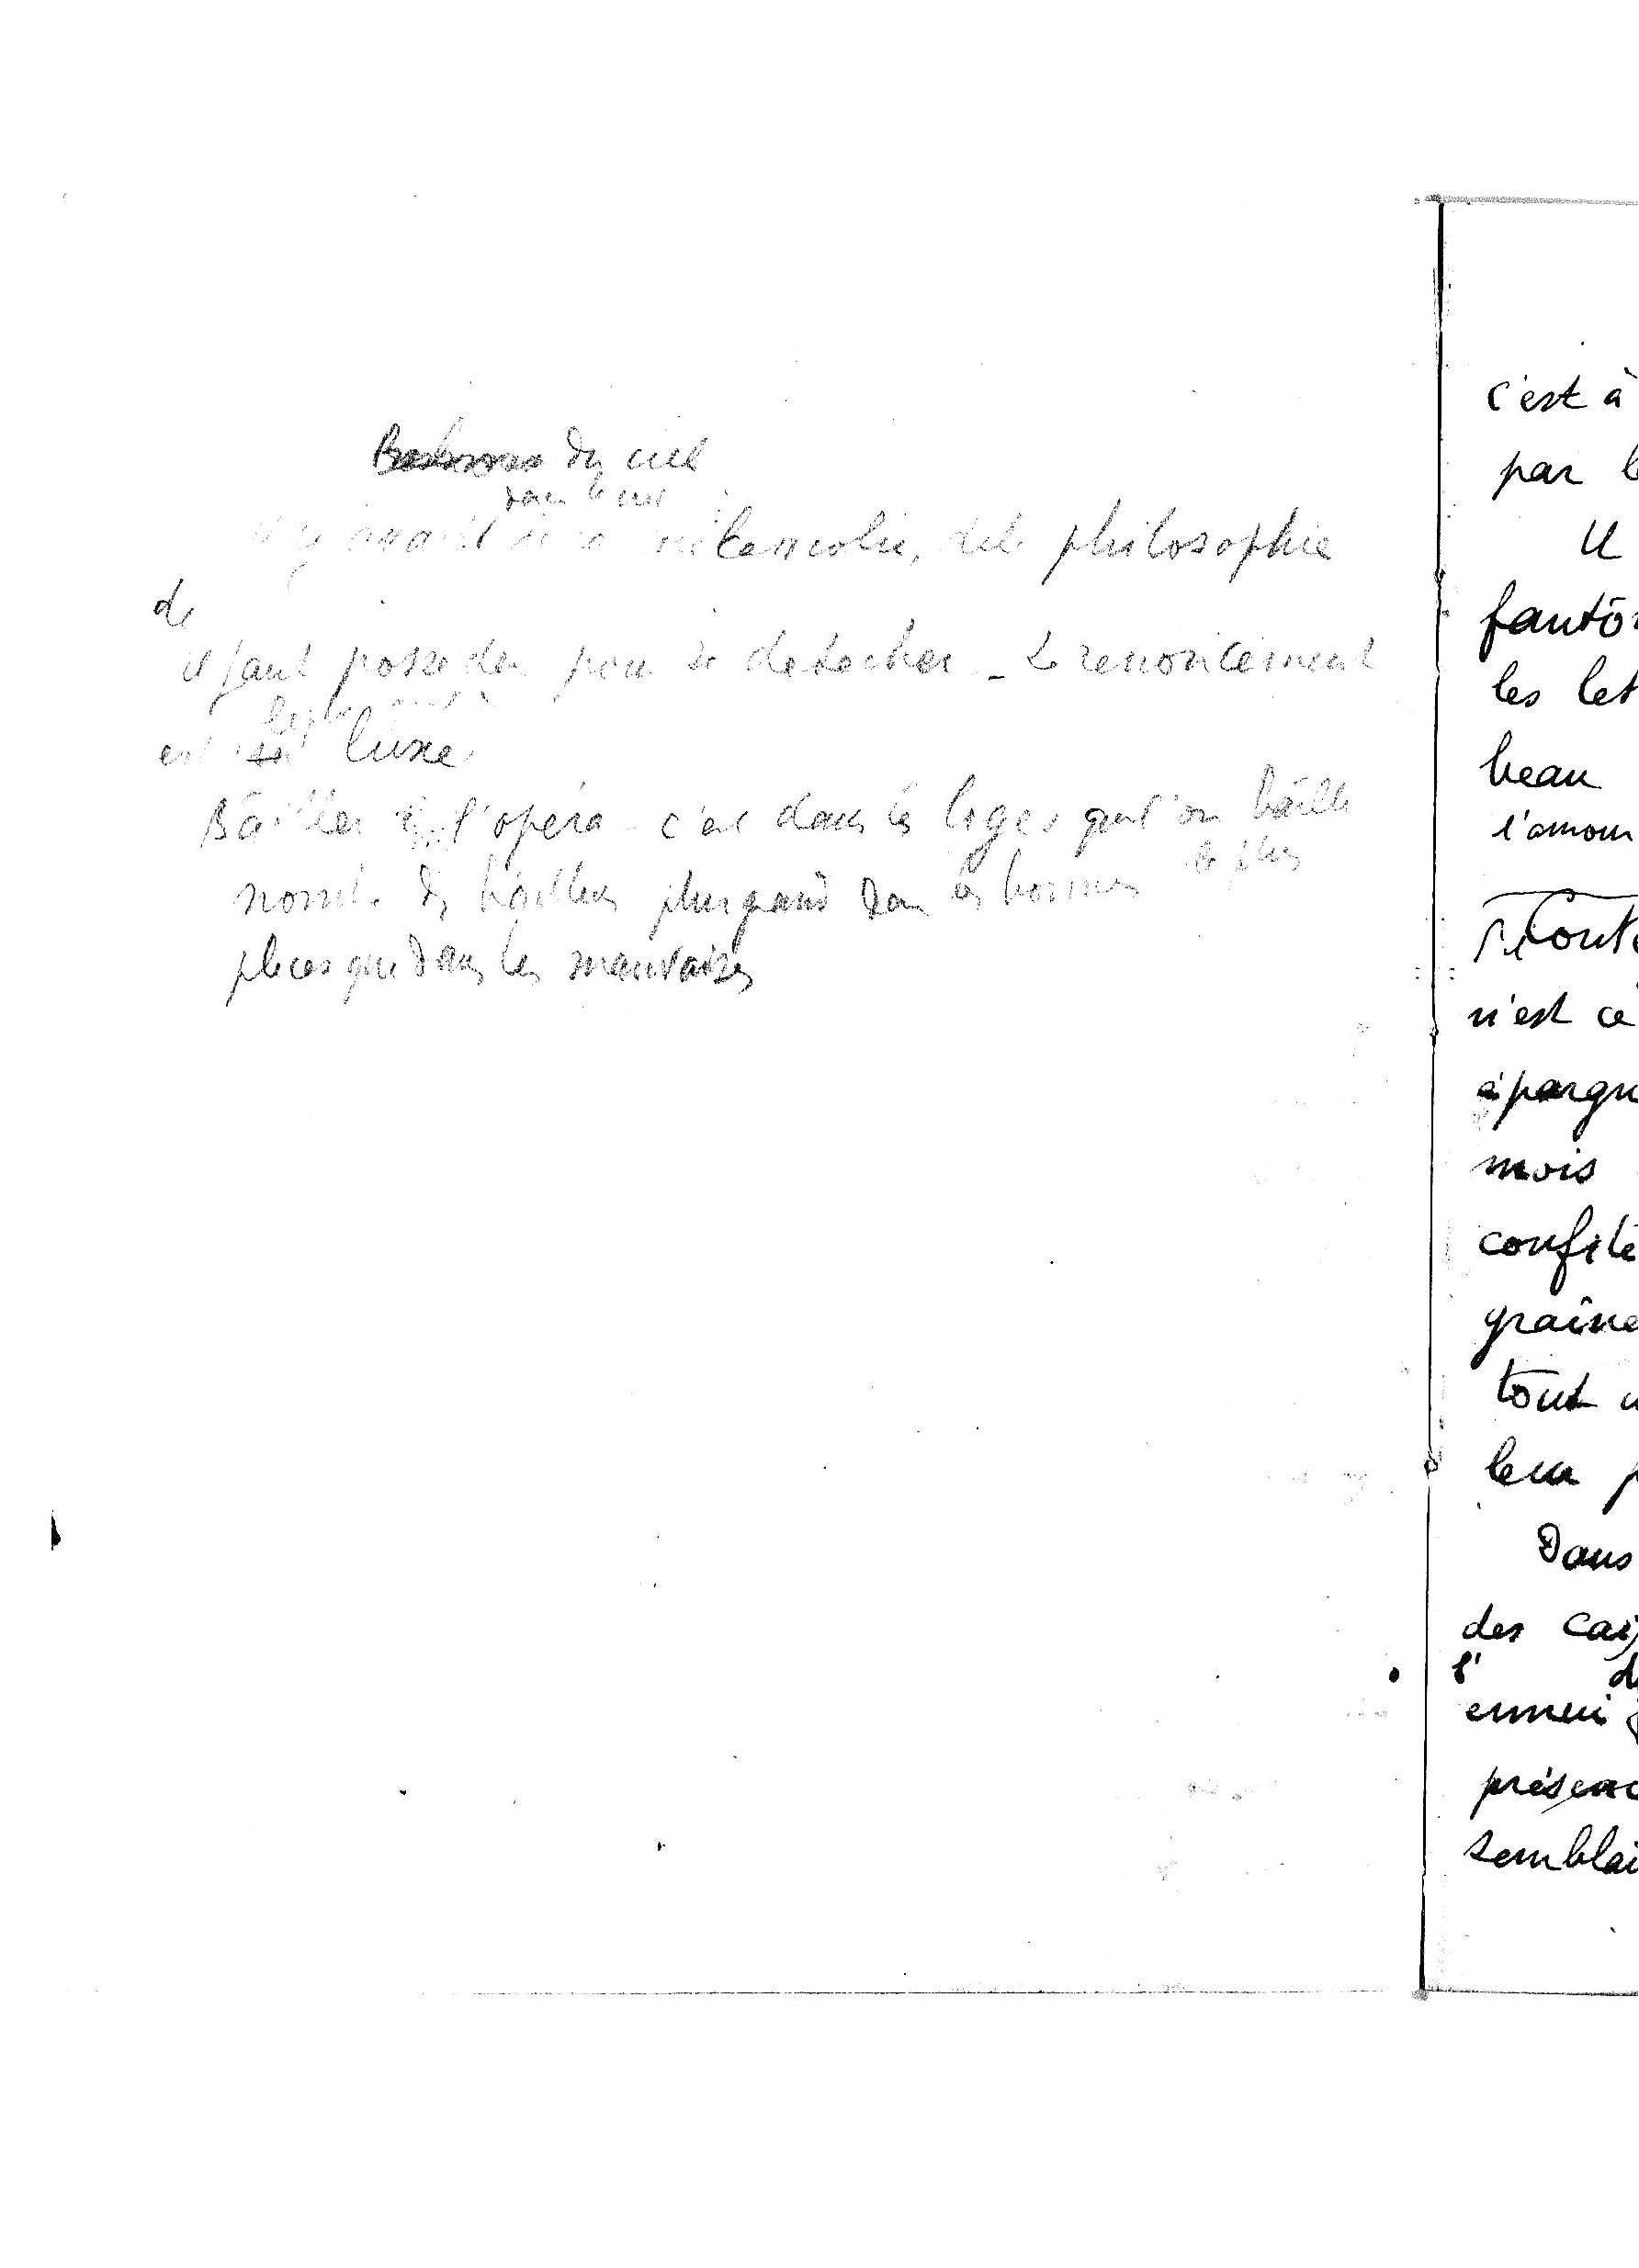 du ciel
dans le ciel
il y avait de la mélancolie, de la philosophie
de
il faut posseder pour se detacher - Le renoncement
est luxe
Bâiller à l'opéra - c'est dans les loges que l'on bâille
le plus
bâiller plus grand dans les bonnes
places que dans les mauvaises
c'est à
par l
Il
fantô
les let
beau
l'amour
n'est ce
épargn
mois
confite
graine
tout
leur p
Dans
des cai
l' d
ennui
présenc
semblai